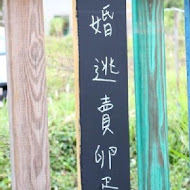 婚逃賣卵